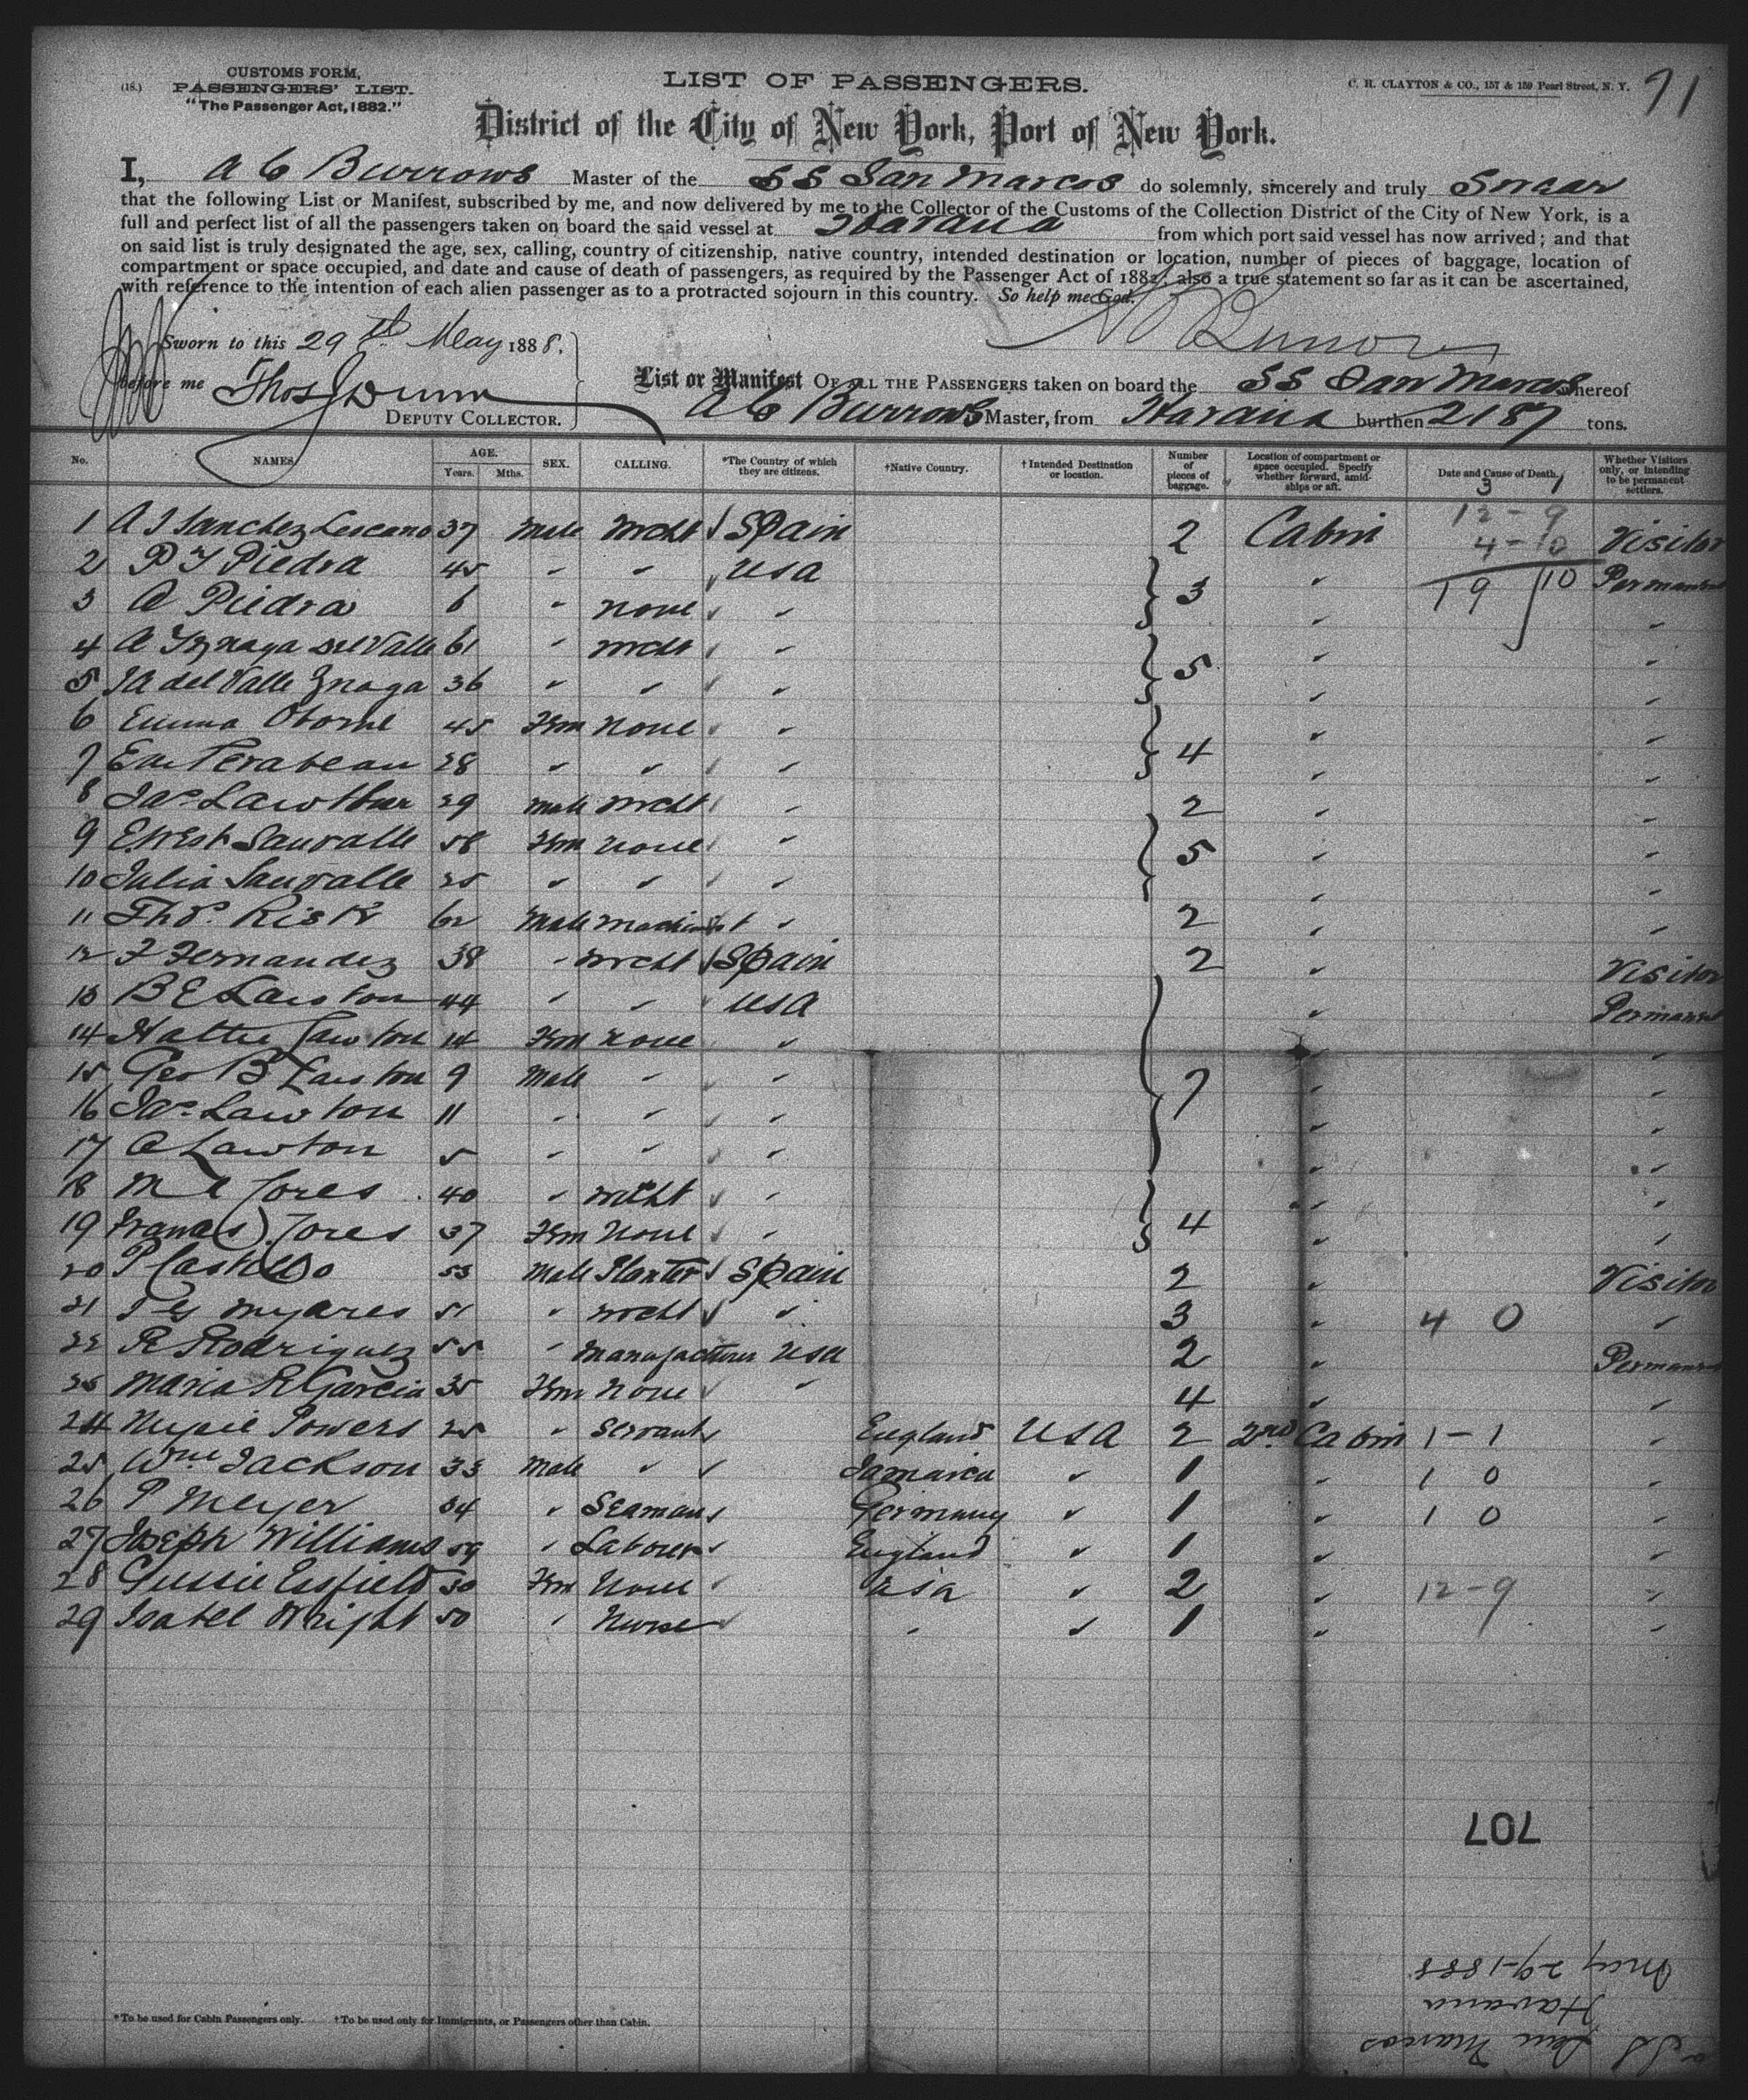 CUSTOMS FORM,
(18.) PASSENGERS' LIST.
"The Passenger Act, 1882."
LIST OF PASSENGERS.
C. H. CLAYTON & CO., 157 & 159 Pearl Street, N. Y.
71
District of the City of New York, Port of New York.
I, A C Burrows Master of the SS San Marcos do solemnly, sincerely and truly Swear
that the following List or Manifest, subscribed by me, and now delivered by me to the Collector of the Customs of the Collection District of the City of New York, is a
full and perfect list of all the passengers taken on board the said vessel at Havana from which port said vessel has now arrived; and that
on said list is truly designated the age, sex, calling, country of citizenship, native country, intended destination or location, number of pieces of baggage, location of
compartment or space occupied, and date and cause of death of passengers, as required by the Passenger Act of 1882; also a true statement so far as it can be ascertained,
with reference to the intention of each alien passenger as to a protracted sojourn in this country. So help me God.
Sworn to this 29th May 1888,
before me Thos J Dunn
DEPUTY COLLECTOR.
List or Manifest OF ALL THE PASSENGERS taken on board the SS San Marcos whereof
A C Burrows Master, from Havana burthen 2187 tons.
No. NAMES. AGE. Years. Mths. SEX. CALLING. *The Country of which they are citizens. †Native Country. †Intended Destination or location. Number of pieces of baggage. Location of compartment or space occupied. Specify whether forward, amidships or aft. Date and Cause of Death. Whether Visitors only, or intending to be permanent settlers.
3 1
12-9
4-10
19 10
1 A J Sanchez Lescano 37 Male Mcht Spain 2 Cabin Visitor
2 P Y Piedra 45 " " USA 3 " Permanent
3 A Piedra 6 " None " " "
4 A Yznaga del Valle 61 " Mcht " 5 " "
5 JA del Valle Znaga 36 " " " " "
6 Emma Oborne 45 Fem None " 4 " "
7 28 " " " " "
8 Jas Lawther 29 Male Mcht " 2 " "
9 E West Sauvalle 58 Fem None " 5 " "
10 Julia Sauvalle 25 " " " " "
11 Thos. Risk 62 Male Machinist " 2 " "
12 F Fernandez 38 " Mcht Spain 2 " Visitor
13 B E Lawton 44 " " USA 7 " Permanent
14 Hattie Lawton 14 Fem None " " "
15 Geo B Lawton 9 Male " " " "
16 Jas Lawton 11 " " " " "
17 A Lawton 5 " " " " "
18 Tores 40 " Mcht " 4 " "
19 Frances Tores 37 Fem None " " "
20 P Castillo 53 Male Planter Spain 2 " Visitor
21 Myares 51 " Mcht " 3 " 4 0 "
22 R Rodriguez 55 " Manufacturer USA 2 " Permanent
23 Maria R Garcia 35 Fem None " 4 " "
24 Powers 25 " Servant England USA 2 2nd Cabin 1-1 "
25 Wm Jackson 33 Male " Jamaica " 1 " 1 0 "
26 P Meyer 34 " Seaman Germany " 1 " 1 0 "
27 Joseph Williams 59 " Labourer England " 1 " "
28 Gussie Essfield 30 Fem None USA " 2 " 12-9 "
29 Isabel Wright 50 " Nurse " " 1 " "
707
SS San Marcos
Havana
May 29-1888
*To be used for Cabin Passengers only. †To be used only for Immigrants, or Passengers other than Cabin.